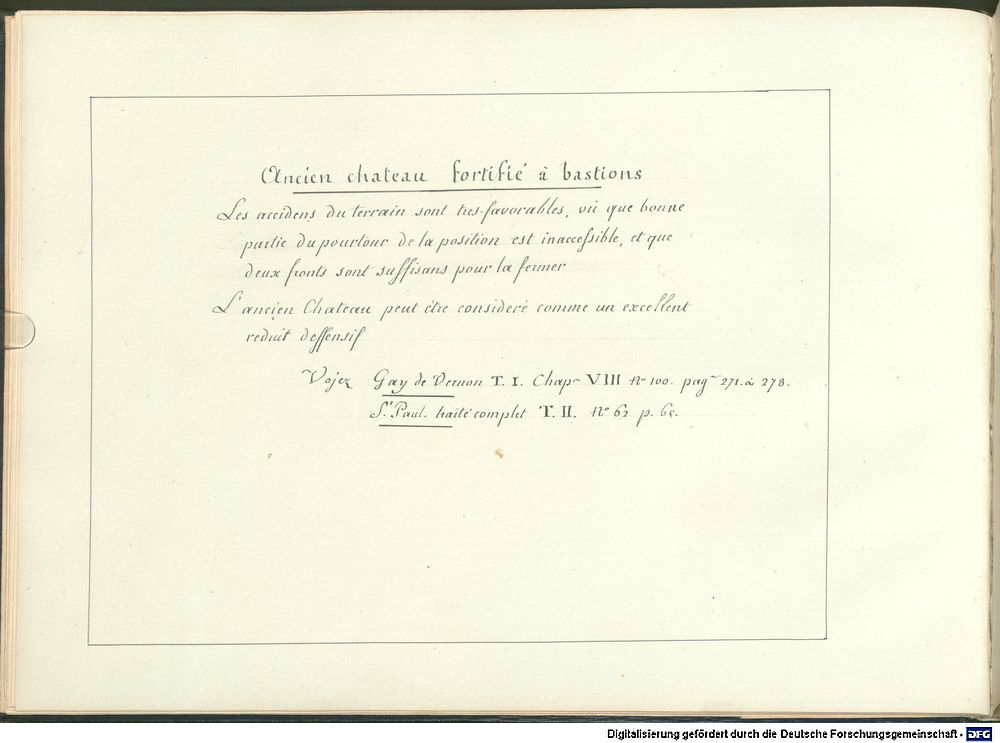 Ancien chateau fortifié à bastions
Les accidens du terrain sont tres-favorables, vû que bonne
partie du pourtour de la position est inaccessible, et que
deux fronts sont suffisans pour la fermer
L'ancien Chateau peut être consideré comme un excellent
reduit deffensif
Vojez Gay de Vernon T. I. Chapr VIII no 100. pagr 271. à 278.
St Paul. traité complet T. II. No 62 p. 65.
Digitalisierung gefördert durch die Deutsche Forschungsgemeinschaft - DFG